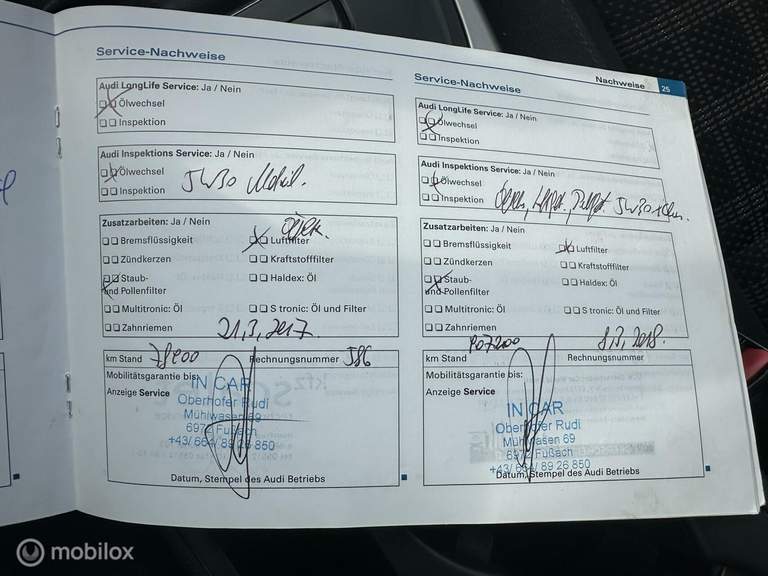 Service-Nachweise
Audi LongLife Service: Ja / Nein
Ölwechsel
Inspektion
Audi Inspektions Service: Ja / Nein
Ölwechsel
Inspektion
5W30 Mobil.
Zusatzarbeiten: Ja / Nein
Bremsflüssigkeit
Luftfilter
Zündkerzen
Kraftstofffilter
Staub-
und Pollenfilter
Haldex: Öl
Multitronic: Öl
S tronic: Öl und Filter
Zahnriemen
21,3,2017.
km Stand
Rechnungsnummer 586
Mobilitätsgarantie bis:
Anzeige Service
IN CAR
Oberhofer Rudi
Mühlwasen 69
6972 Fußach
+43/ 664/ 89 26 850
Datum, Stempel des Audi Betriebs
Nachweise
25
Service-Nachweise
Audi LongLife Service: Ja / Nein
Ölwechsel
Inspektion
Audi Inspektions Service: Ja / Nein
Ölwechsel
Inspektion
5W30
Zusatzarbeiten: Ja / Nein
Bremsflüssigkeit
Luftfilter
Zündkerzen
Kraftstofffilter
Staub-
und Pollenfilter
Haldex: Öl
Multitronic: Öl
S tronic: Öl und Filter
Zahnriemen
8,3,2018.
km Stand 107200
Rechnungsnummer
Mobilitätsgarantie bis:
Anzeige Service
IN CAR
Oberhofer Rudi
Mühlwasen 69
6972 Fußach
+43/ 664/ 89 26 850
Datum, Stempel des Audi Betriebs
mobilox